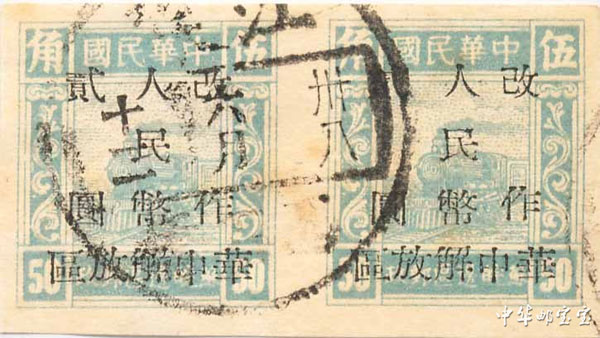 伍 中華民國 角
改作
人民幣
圓
華中解放區
50 50
伍 中華民國 角
改作
人民幣
貳圓
華中解放區
50 50
江
卅八
六月
十二
中华邮宝宝